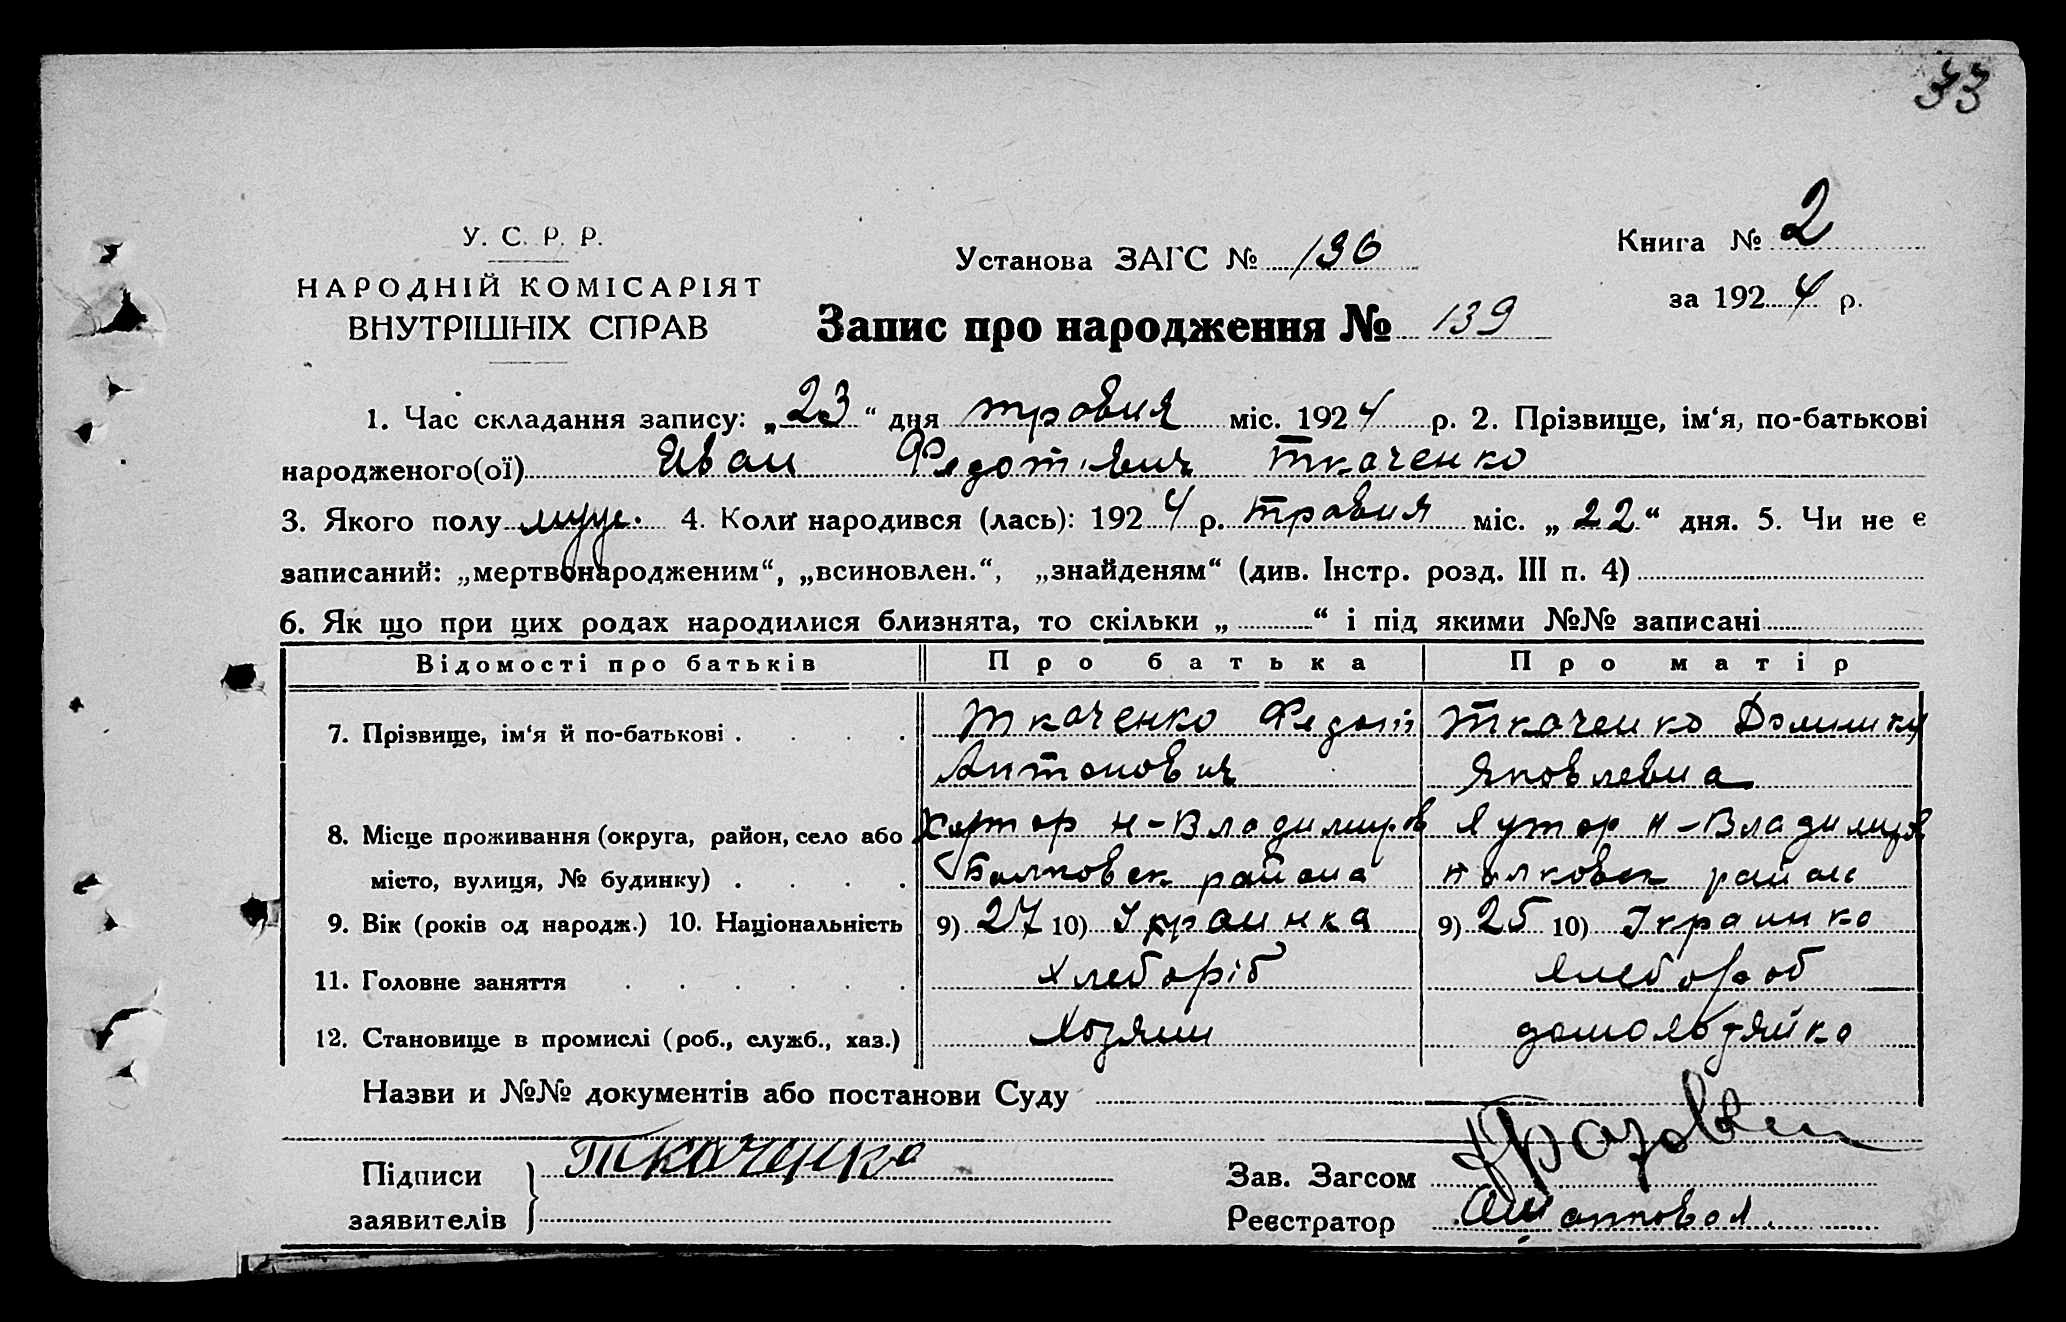 33
У. С. Р. Р.
НАРОДНІЙ КОМІСАРІЯТ
ВНУТРІШНІХ СПРАВ
Установа ЗАГС № 136
Книга № 2
за 1924 р.
Запис про народження № 139
1. Час складання запису: „23“ дня травня міс. 1924 р. 2. Прізвище, ім‘я, по-батькові
народженого(ої) Иван Федотьевич Ткаченко
3. Якого полу муж. 4. Коли народився (лась): 1924 р. травня міс. „22“ дня. 5. Чи не є
записаний: „мертвонародженим“, „всиновлен.“, „знайденям“ (див. Інстр. розд. III п. 4)
6. Як що при цих родах народилися близнята, то скільки „ “ і під якими №№ записані
Відомості про батьків Про батька Про матір
7. Прізвище, ім‘я й по-батькові . . . . Ткаченко Федот Ткаченко
Антонович Яковлевна
8. Місце проживання (округа, район, село або Хутор Н-Владимиров Хутор Н-Владимиров
місто, вулиця, № будинку) . . . . района района
9. Вік (років од народж.) 10. Національність 9) 27 10) Украинка 9) 25 10) Украинка
11. Головне заняття . . . . . . Хлеборіб Хлебороб
12. Становище в промислі (роб., служб., хаз.) Хозяин домохозяйка
Назви и №№ документів або постанови Суду
Підписи Ткаченко
заявителів
Зав. Загсом
Реєстратор